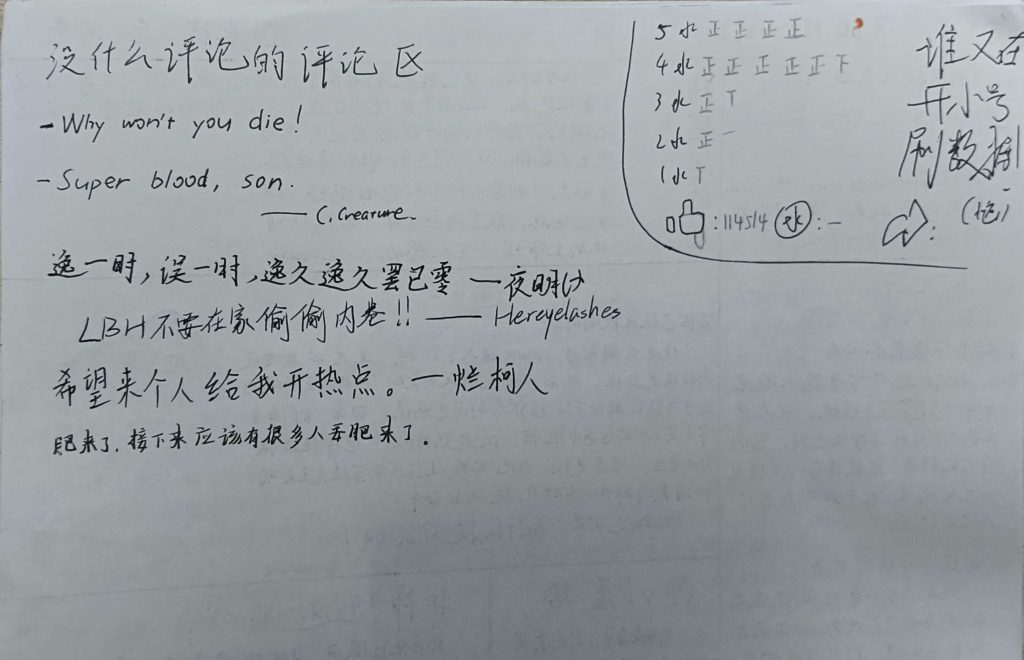 没什么评论的评论区
- Why won't you die!
- Super blood, son.
—— C.Creature.
逸一时，误一时，逸久逸久罢已零 一夜明沙
LBH不要在家偷偷内卷!! —— Hereyelashes
希望来个人给我开热点。一烂柯人
肥来了，接下来应该有很多人要肥来了。
5水 正 正 正 正
4水 正 正 正 正 正 下
3水 正 T
2水 正 一
1水 T
:114514 水:一
谁又在
开小号
刷数据
(恼)